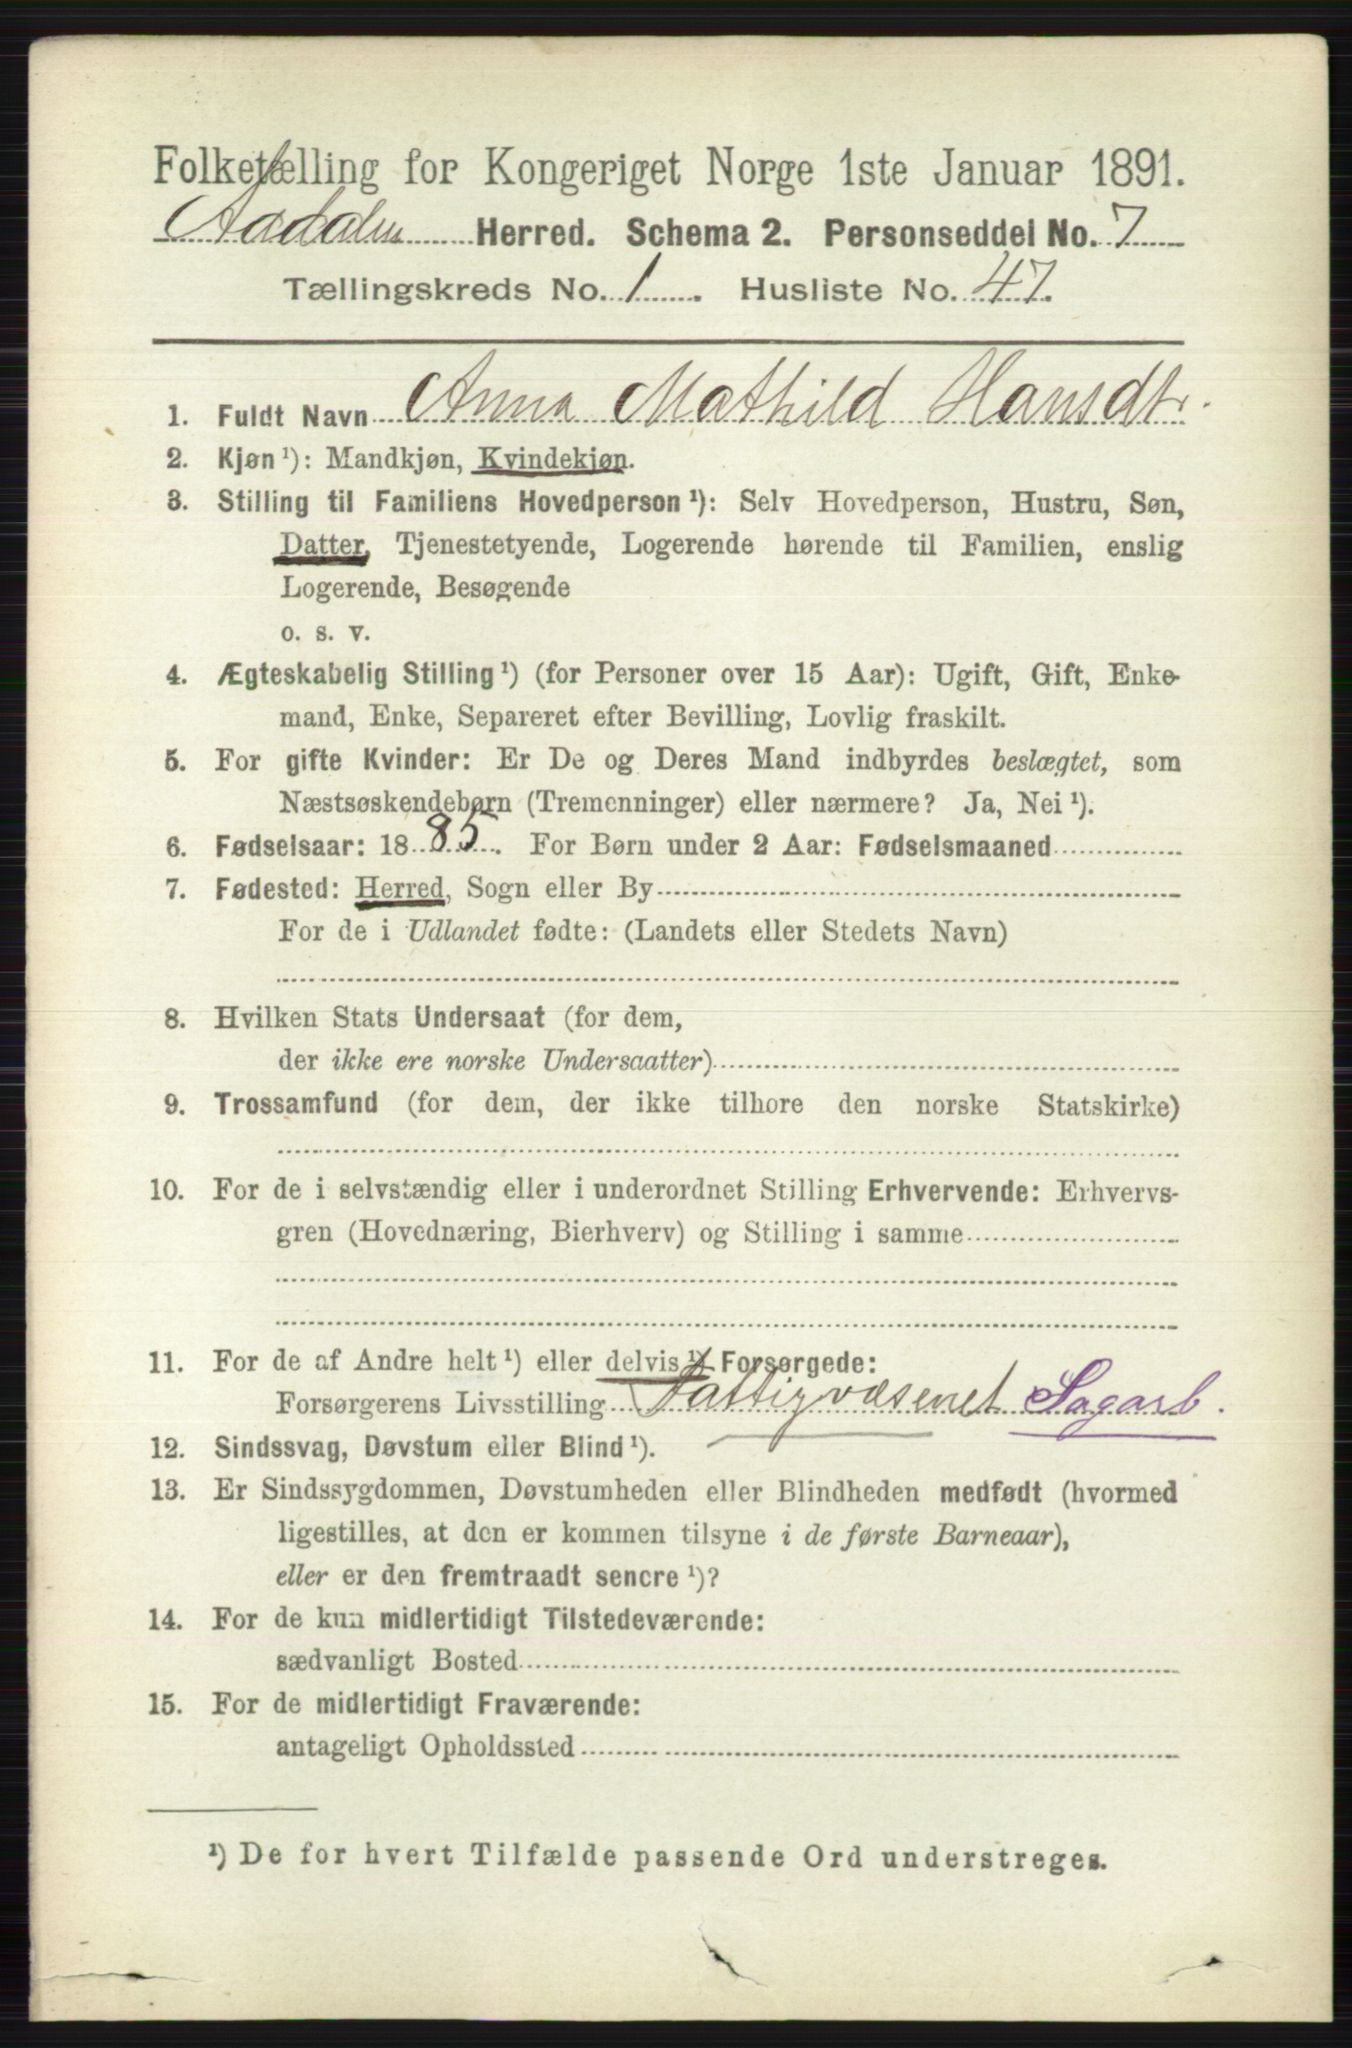 Folketælling for Kongeriget Norge 1ste Januar 1891.
Aadalen Herred. Schema 2. Personseddel No. 7
Tællingskreds No. 1. Husliste No. 47.
1. Fuldt Navn Anna Mathild Hansdtr.
2. Kjøn ¹): Mandkjøn, Kvindekjøn.
3. Stilling til Familiens Hovedperson ¹): Selv Hovedperson, Hustru, Søn,
Datter, Tjenestetyende, Logerende hørende til Familien, enslig
Logerende, Besøgende
o. s. v.
4. Ægteskabelig Stilling ¹) (for Personer over 15 Aar): Ugift, Gift, Enke-
mand, Enke, Separeret efter Bevilling, Lovlig fraskilt.
5. For gifte Kvinder: Er De og Deres Mand indbyrdes beslægtet, som
Næstsøskendebørn (Tremenninger) eller nærmere? Ja, Nei ¹).
6. Fødselsaar: 1885. For Børn under 2 Aar: Fødselsmaaned
7. Fødested: Herred, Sogn eller By
For de i Udlandet fødte: (Landets eller Stedets Navn)
8. Hvilken Stats Undersaat (for dem,
der ikke ere norske Undersaatter)
9. Trossamfund (for dem, der ikke tilhøre den norske Statskirke)
10. For de i selvstændig eller i underordnet Stilling Erhvervende: Erhvervs-
gren (Hovednæring, Bierhverv) og Stilling i samme
11. For de af Andre helt ¹) eller delvis ¹) Forsørgede:
Forsørgerens Livsstilling Fattigvæsenet Sagarb.
12. Sindssvag, Døvstum eller Blind ¹).
13. Er Sindssygdommen, Døvstumheden eller Blindheden medfødt (hvormed
ligestilles, at den er kommen tilsyne i de første Barneaar),
eller er den fremtraadt senere ¹)?
14. For de kun midlertidigt Tilstedeværende:
sædvanligt Bosted
15. For de midlertidigt Fraværende:
antageligt Opholdssted
¹) De for hvert Tilfælde passende Ord understreges.